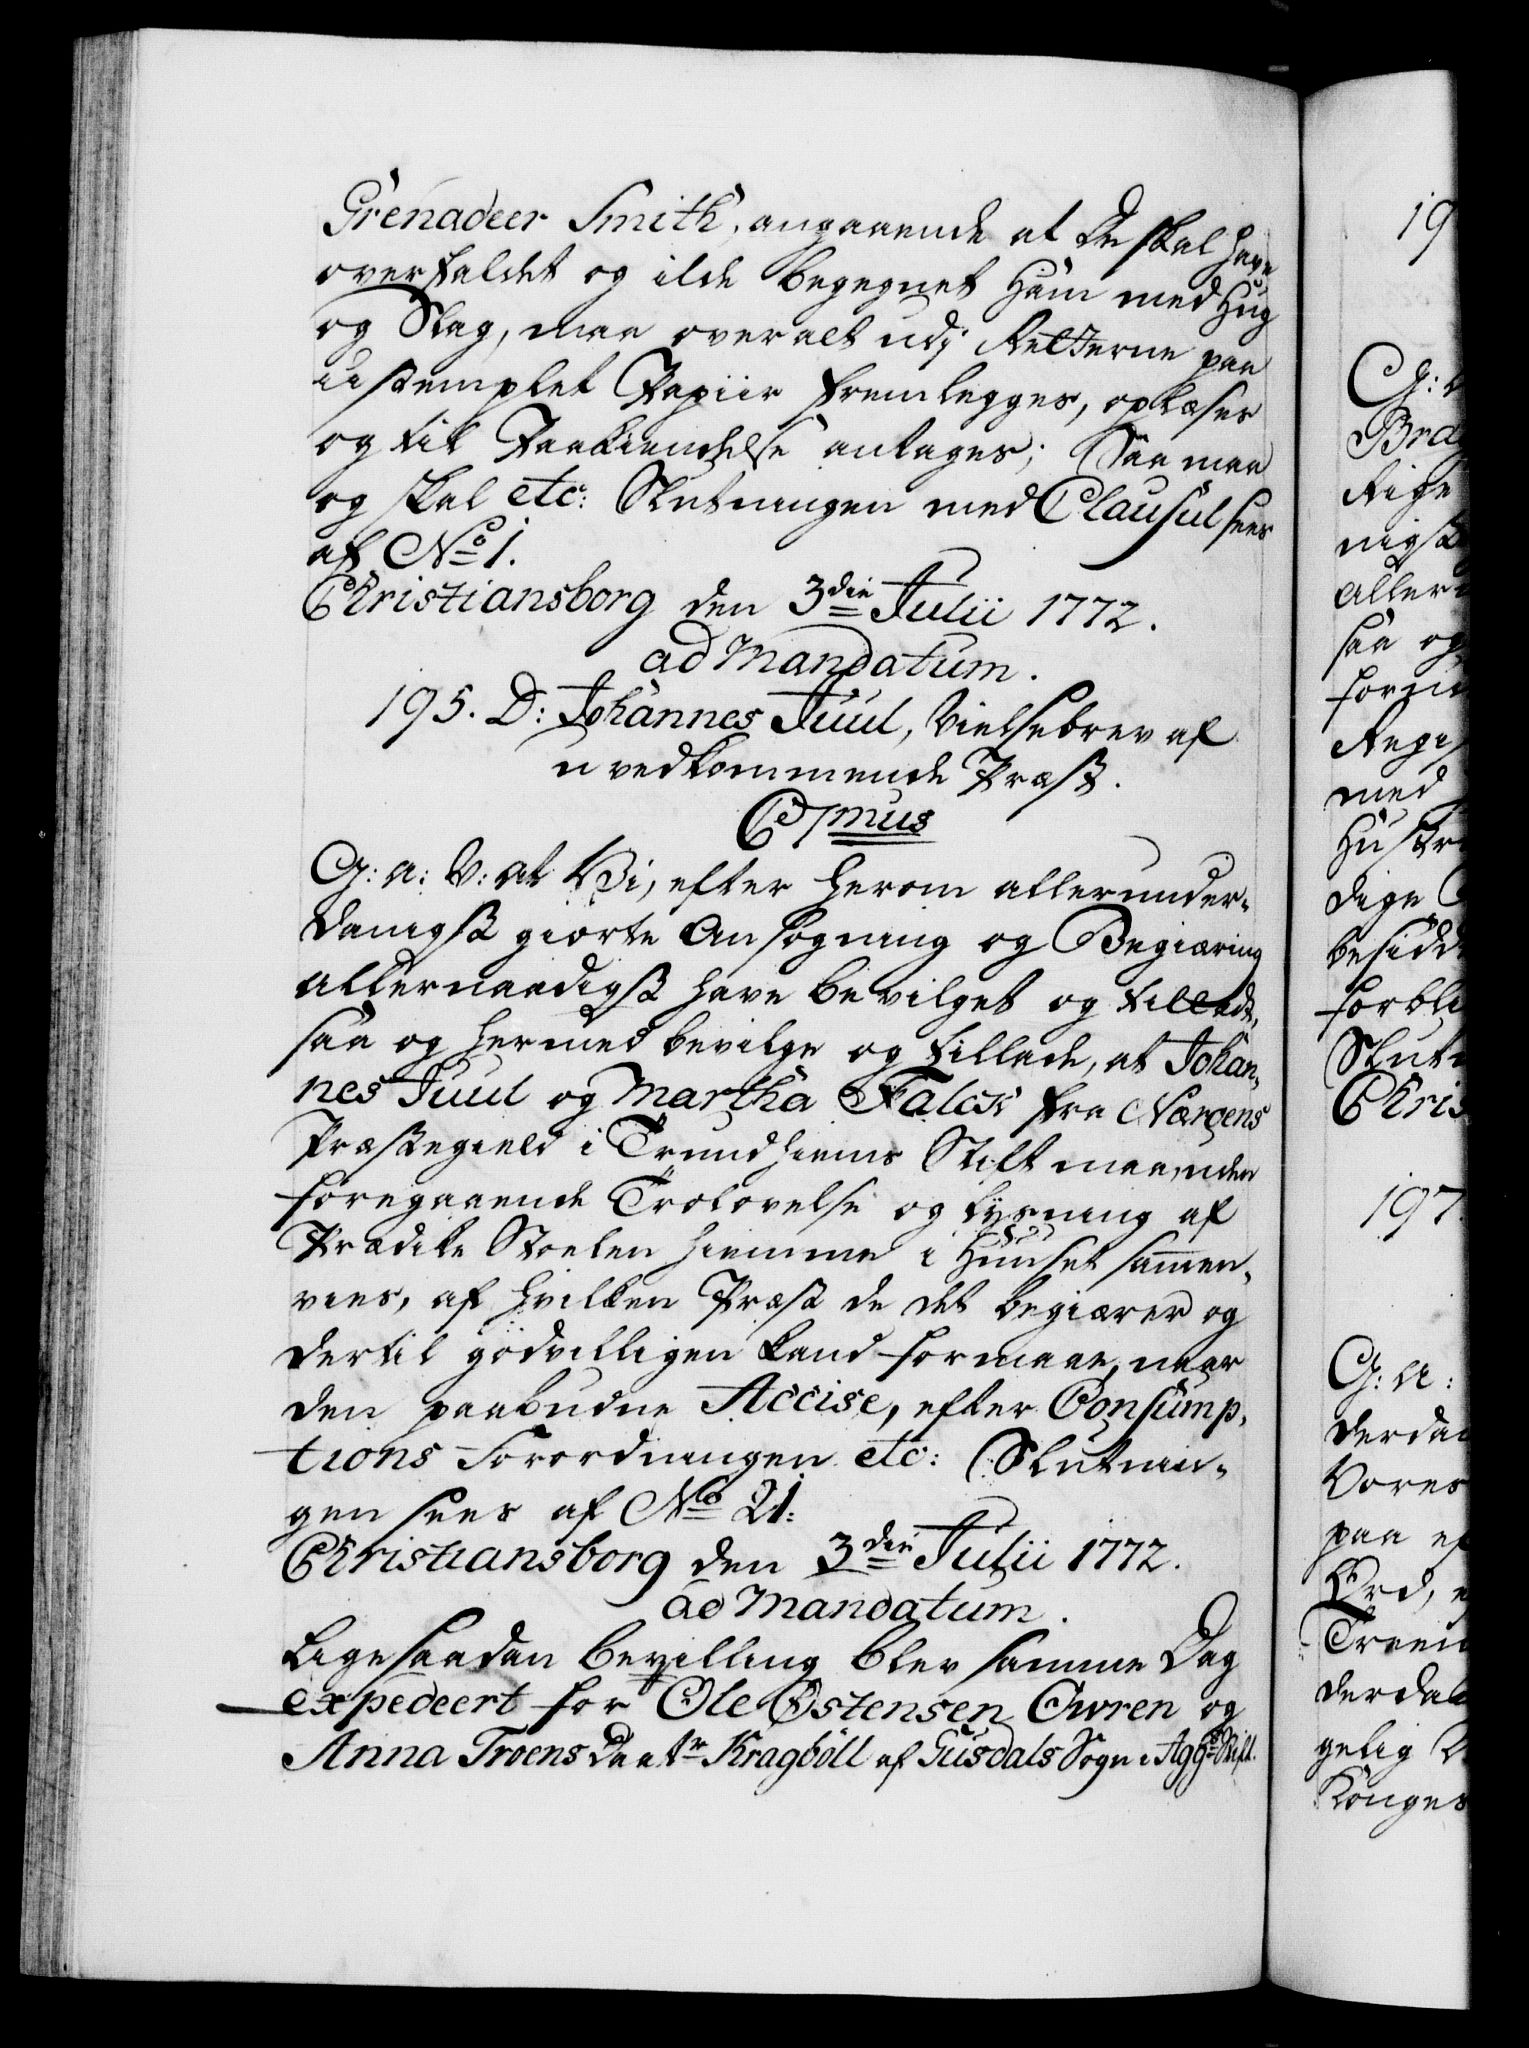 Grenadeer Smith, angaaende at De skal have
overfaldet og ilde begegnet Ham med Hug
og Slag, maa overalt udj Retterne paa
ustemplet Papiir fremlegges, oplæses
og til Paakiendelse antages; Saa maa
og skal etc: Slutningen med Clausul sees
af No 1.
Christiansborg den 3die Julii 1772.
ad Mandatum.
195. D: Johannes Juul, Vielsebrev af
uvedkommende Præst.
C7mus
G: A: V: at Vi, efter herom allerunder-
danigst giorte Ansøgning og Begiæring
allernaadigst have bevilget og tilladt,
saa og hermed bevilge og tillade, at Johan-
nes Juul og Martha Falck fra Nærøens
Præstegield i Trundhiems Stift maa, uden
foregaaende Trolovelse og Lysning af
Prædike Stoelen hiemme i Huuset sammen-
vies, af hvilken Præst de det begiærer og
dertil godvilligen kand formaae, naar
den paabudne Accise, efter Consump-
tions Forordningen etc: Slutnin-
gen sees af No 21.
Christiansborg den 3die Julii 1772.
ad Mandatum.
Ligesaadan bevilling blev samme Dag
expedeert for Ole Østensen Owren og
Anna Troens Daatr Kragböll af Gusdals Sogn i Aggs Stift.
19
G: A
Brag
Rige
nigst
aller
saa og
fore
Regi
med
Hustr
dige
besidd
forbli
Slut
Chris
197.
G: A:
derda
Vores
paa ef
Ord, e
derda
gelig
Konges